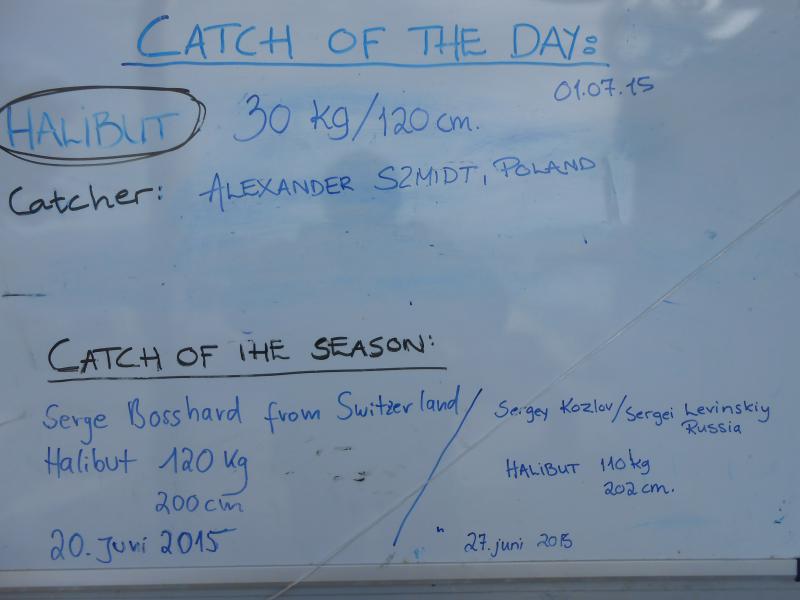 CATCH OF THE DAY:
01.07.15
HALIBUT 30 kg/120 cm.
Catcher: ALEXANDER SZMIDT, POLAND
CATCH OF THE SEASON:
Serge Bosshard from Switzerland
Halibut 120 kg
200 cm
20. Juni 2015
Sergey Kozlov/Sergei Levinskiy
Russia
HALIBUT 110 kg
202 cm.
27. juni 2015